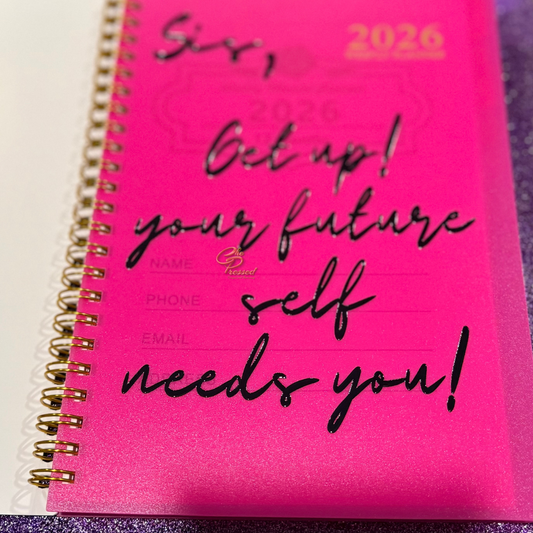 Sis,
2026
2026
Get up!
your future
NAME
She Pressed
PHONE
self
EMAIL
needs you!